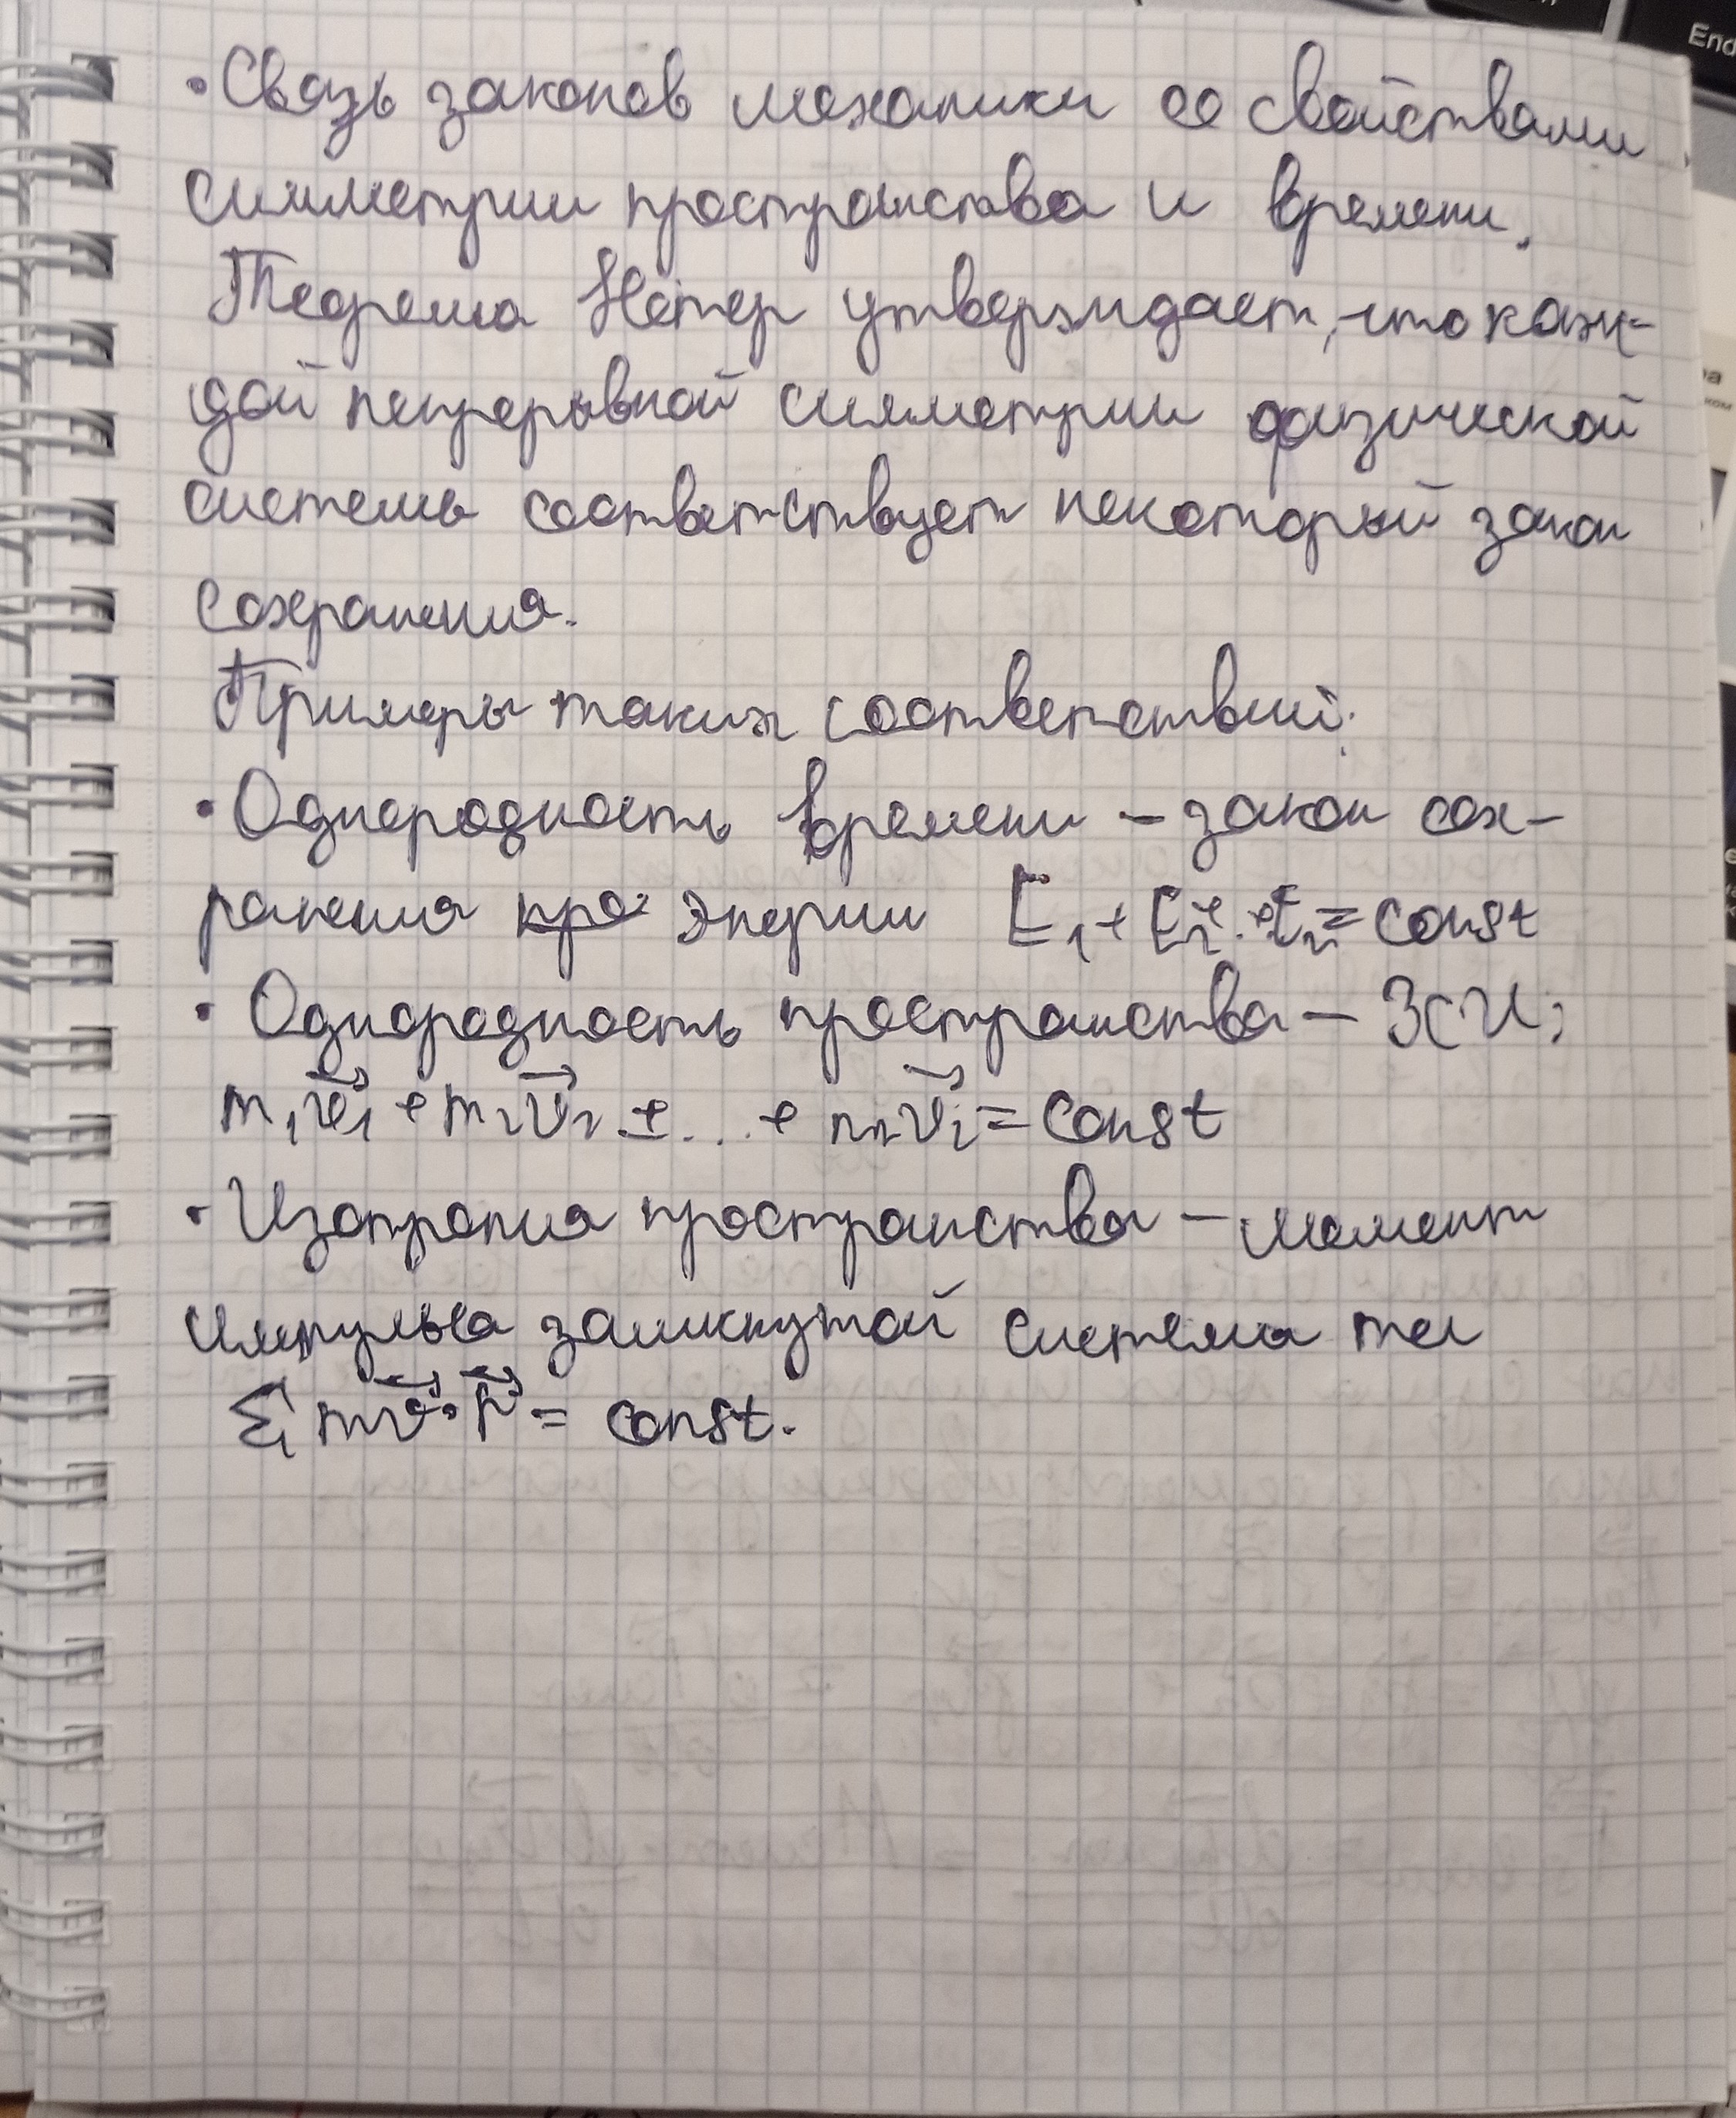 • Связь законов механики со свойствами
симметрии пространства и времени.
Теорема Нётер утверждает, что каж-
дой непрерывной симметрии физической
системы соответствует некоторый закон
сохранения.
Примеры таких соответствий:
• Однородность времени – закон сох-
ранения энергии E₁ + E₂ + .. + Eₙ = const
• Однородность пространства – ЗСИ:
m₁v⃗₁ + m₂v⃗₂ + ... + mₙv⃗₂ = const
• Изотропия пространства – момент
импульса замкнутой системы тел
Σ mv⃗ · r⃗ = const.
End